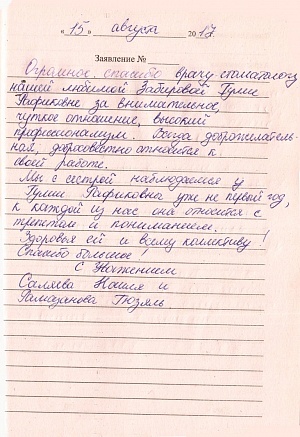 « 15 » августа 2017.
Заявление №
Огромное, спасибо врачу стоматологу
нашей любимой Забировой Гулие
Рафиковне за внимательное,
чуткое отношение, высокий
профессионализм. Всегда доброжелатель-
ная, добросовестно относится к
своей работе.
Мы с сестрой наблюдаемся у
Гулии Рафиковна уже не первый год,
к каждой из нас она относится с
трепетам и пониманием.
Здоровья ей и всему коллективу!
Спасибо большое!
С Уважением
Саляева Наиля и
Рамазанова Гюзяль.